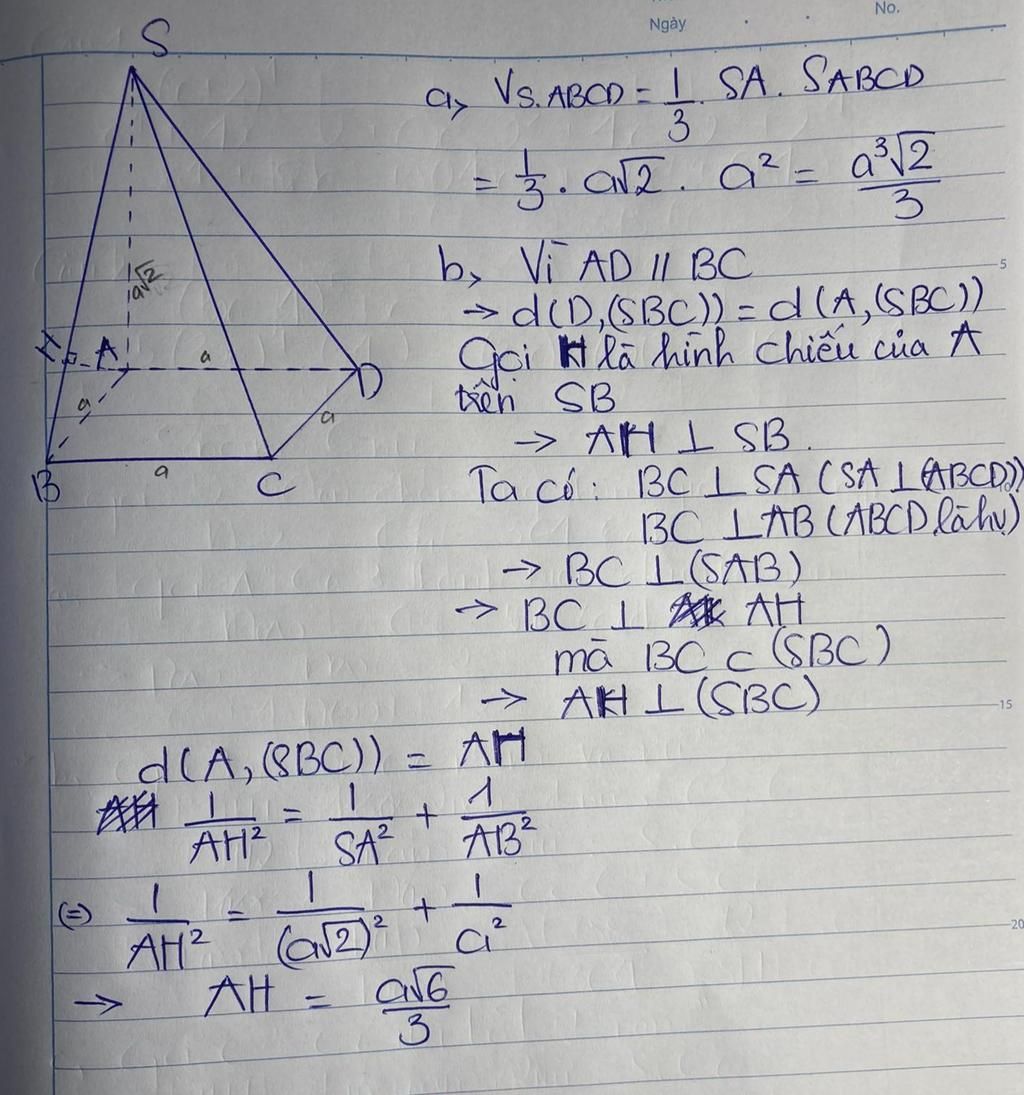 Ngày
No.
S
a√2
H
A
a
a
D
a
B
a
C
a, VS.ABCD = 1/3 . SA . SABCD
= 1/3 . a√2 . a² = a³√2/3
b, Vì AD // BC
→ d(D,(SBC)) = d(A,(SBC))
Gọi H là hình chiếu của A
trên SB
→ AH ⊥ SB.
Ta có: BC ⊥ SA (SA ⊥ (ABCD))
BC ⊥ AB (ABCD là hv)
→ BC ⊥ (SAB)
→ BC ⊥ AH
mà BC ⊂ (SBC)
→ AH ⊥ (SBC)
d(A,(SBC)) = AH
1/AH² = 1/SA² + 1/AB²
(=) 1/AH² = 1/(a√2)² + 1/a²
→ AH = a√6/3
5
15
20